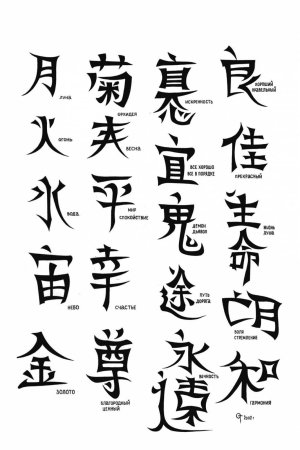 月
ЛУНА
火
ОГОНЬ
水
ВОДА
宙
НЕБО
金
ЗОЛОТО
菊
ОРХИДЕЯ
夫
ВЕСНА
平
МИР
СПОКОЙСТВИЕ
幸
СЧАСТЬЕ
尊
БЛАГОРОДНЫЙ
ЦЕННЫЙ
ИСКРЕННОСТЬ
宜
ВСЕ ХОРОШО
ВСЕ В ПОРЯДКЕ
鬼
ДЕМОН
ДЬЯВОЛ
途
ПУТЬ
ДОРОГА
永
遠
ВЕЧНОСТЬ
良
ХОРОШИЙ
佳
ПРЕКРАСНЫЙ
生
命
ЖИЗНЬ
ДУША
ВОЛЯ
СТРЕМЛЕНИЕ
和
ГАРМОНИЯ